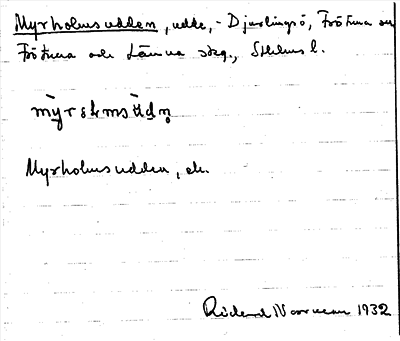 Myrholmsudden, udde, - Djurlingsö, Frötuna sn
Frötuna och Länna skg., Sthlms l.
Myrholmsudden, ek.
Rickard Norrman 1932